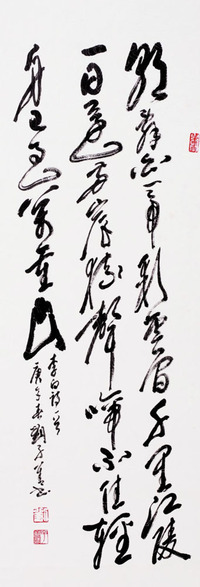 朝辞白帝彩云间千里江陵
一日还两岸猿声啼不住轻
舟已过万重山
李白诗一首